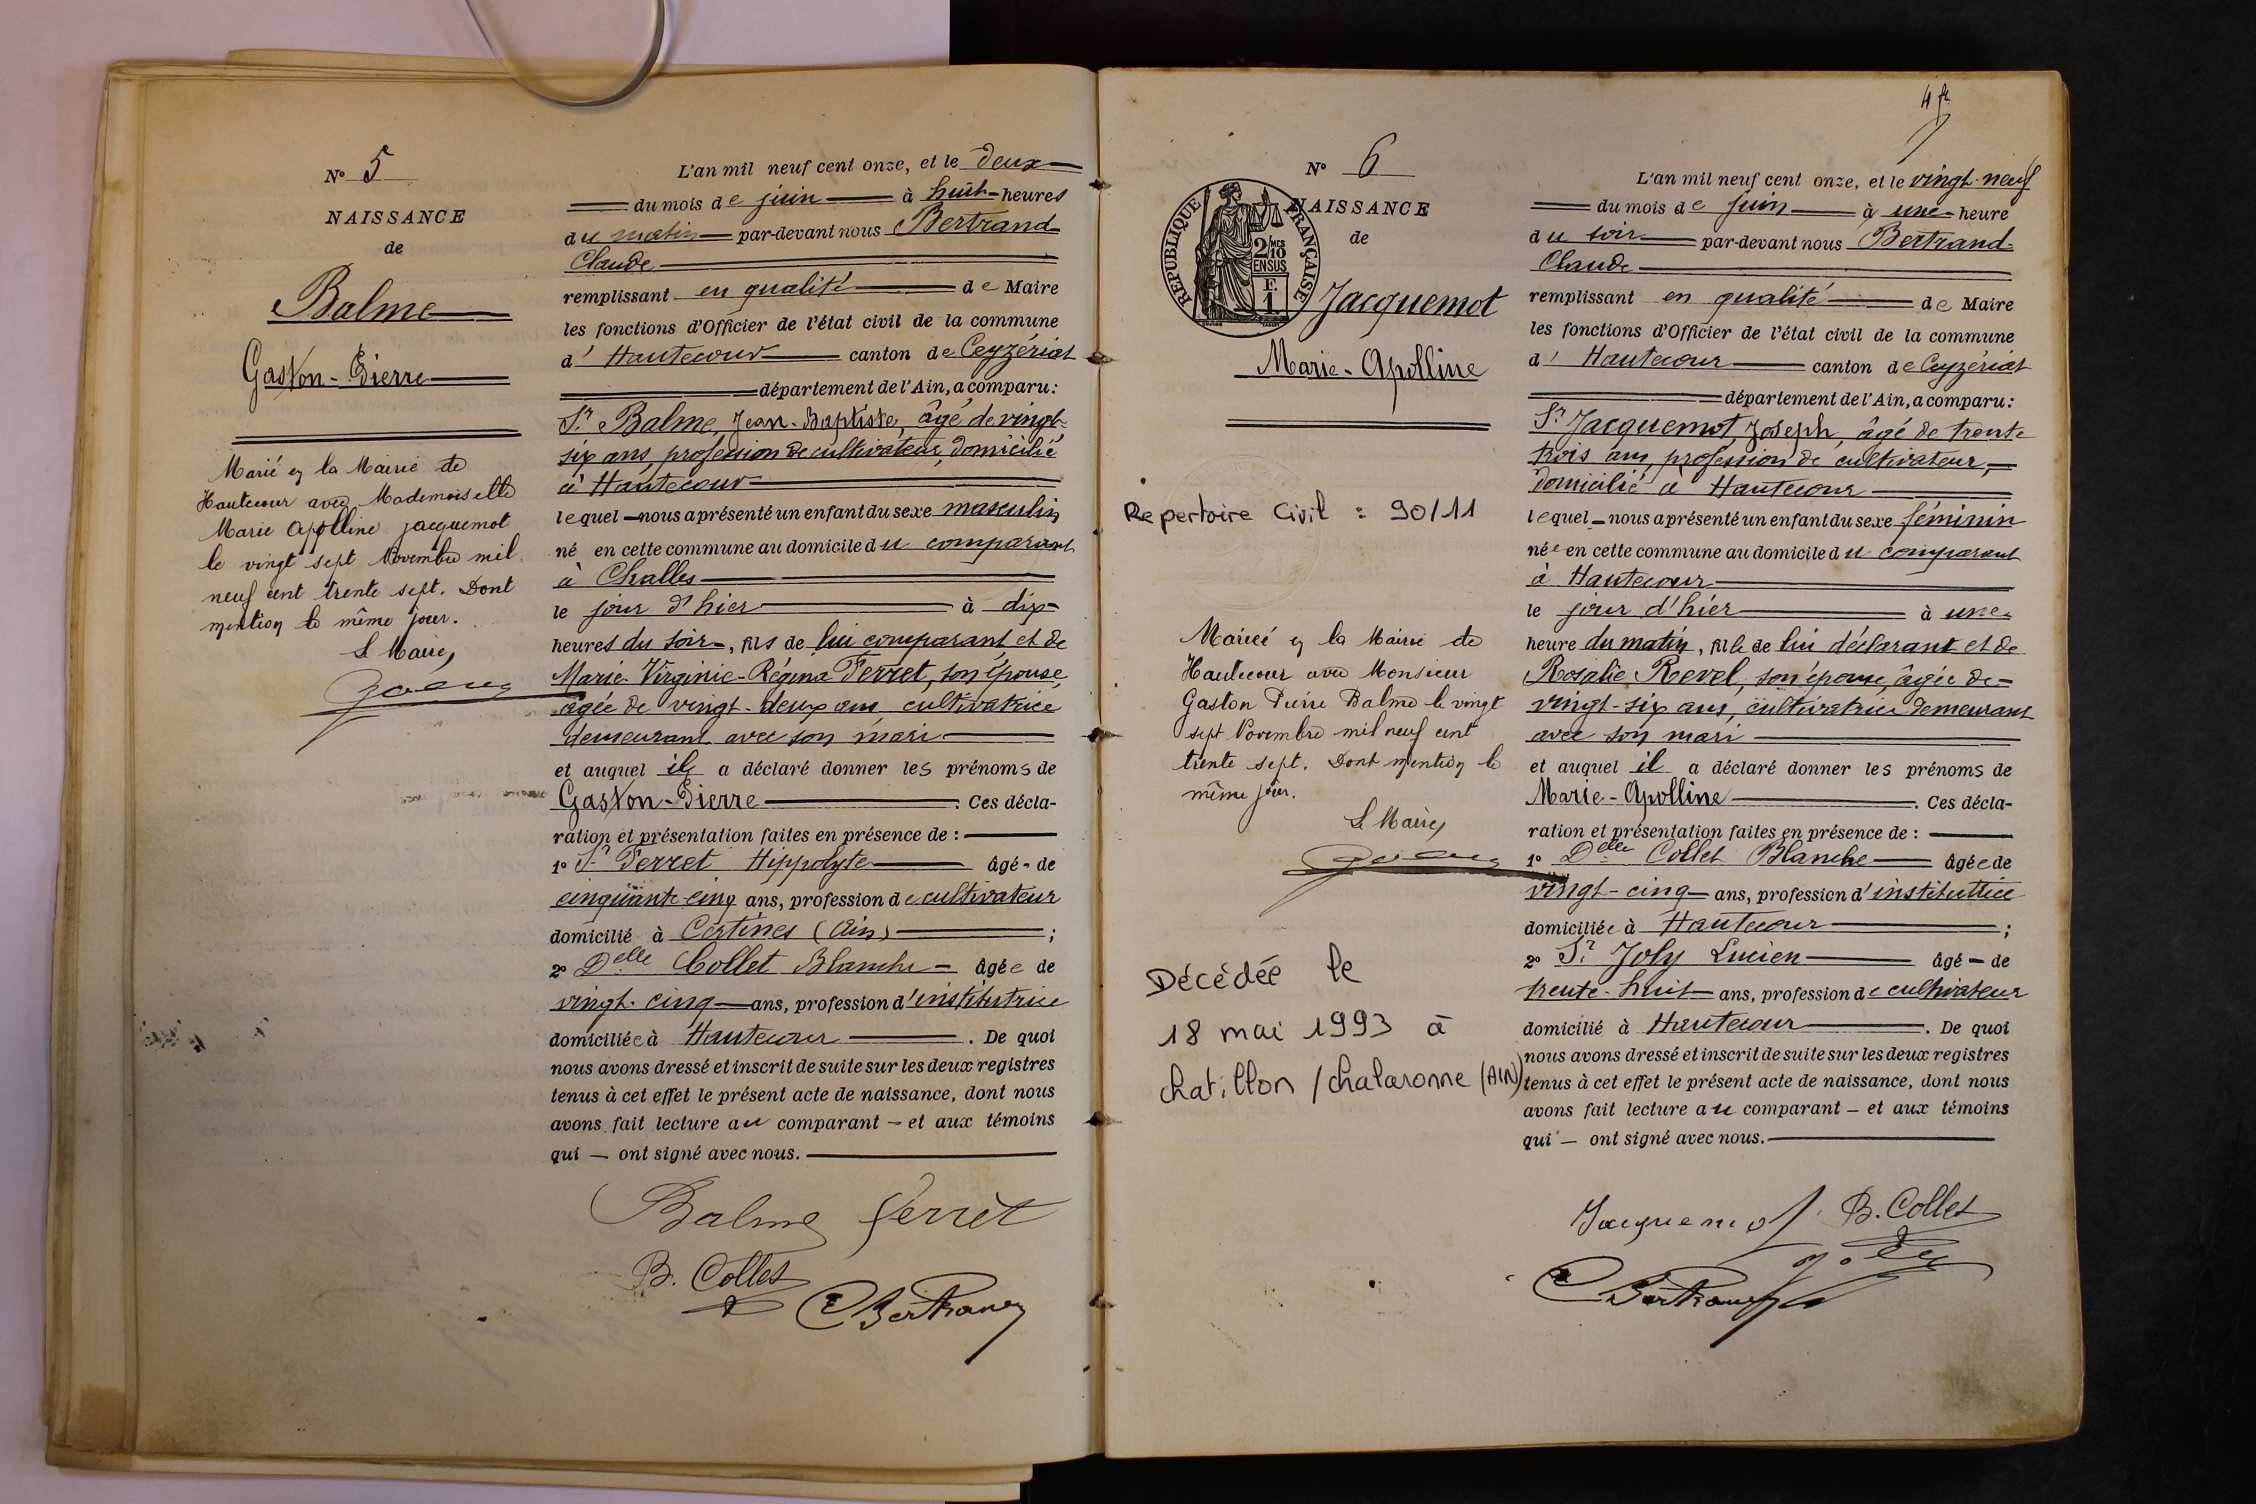 N° 5
NAISSANCE
de
Balme
Gaston-Pierre
Marié en la Mairie de
Hautecour avec Mademoiselle
Marie Apolline Jacquemot
le vingt sept Novembre mil
neuf cent trente sept. Dont
mention le même jour.
Le Maire,
L'an mil neuf cent onze, et le deux
du mois de juin à huit heures
du matin par-devant nous Bertrand
Claude
remplissant en qualité de Maire
les fonctions d'Officier de l'état civil de la commune
d'Hautecour canton de Ceyzériat
département de l'Ain, a comparu:
Sr Balme, Jean-Baptiste, âgé de vingt-
six ans, profession de cultivateur, domicilié
à Hautecour
lequel nous a présenté un enfant du sexe masculin
né en cette commune au domicile du comparant
à Challes
le jour d'hier à dix
heures du soir, fils de lui comparant et de
Marie-Virginie-Régina Ferret, son épouse,
âgée de vingt-deux ans, cultivatrice
demeurant avec son mari
et auquel il a déclaré donner les prénoms de
Gaston-Pierre. Ces décla-
ration et présentation faites en présence de :
1° Sr Ferret Hippolyte âgé de
cinquante-cinq ans, profession de cultivateur
domicilié à Certines (Ain) ;
2° Delle Collet Blanche âgée de
vingt-cinq ans, profession d'institutrice
domiciliée à Hautecour. De quoi
nous avons dressé et inscrit de suite sur les deux registres
tenus à cet effet le présent acte de naissance, dont nous
avons fait lecture au comparant et aux témoins
qui ont signé avec nous.
Balme Ferret
B. Collet
C Bertrand
4 ft
N° 6
RÉPUBLIQUE FRANÇAISE
2/10 MES
EN SUS
F.
1
NAISSANCE
de
Jacquemot
Marie-Apolline
Repertoire Civil : 90/11
Mariée en la Mairie de
Hautecour avec Monsieur
Gaston Pierre Balme le vingt
sept Novembre mil neuf cent
trente sept. Dont mention le
même jour.
Le Maire,
Décédée le
18 mai 1993 à
Chatillon/chalaronne (AIN)
L'an mil neuf cent onze, et le vingt-neuf
du mois de juin à une heure
du soir par-devant nous Bertrand
Claude
remplissant en qualité de Maire
les fonctions d'Officier de l'état civil de la commune
d'Hautecour canton de Ceyzériat
département de l'Ain, a comparu:
Sr Jacquemot, Joseph, âgé de trente
trois ans, profession de cultivateur,
domicilié à Hautecour
lequel nous a présenté un enfant du sexe féminin
née en cette commune au domicile du comparant
à Hautecour
le jour d'hier à une
heure du matin, fille de lui déclarant et de
Rosalie Revel, son épouse, âgée de
vingt-six ans, cultivatrice demeurant
avec son mari
et auquel il a déclaré donner les prénoms de
Marie-Apolline. Ces décla-
ration et présentation faites en présence de :
1° Delle Collet Blanche âgée de
vingt-cinq ans, profession d'institutrice
domiciliée à Hautecour ;
2° Sr Joly Lucien âgé de
trente-huit ans, profession de cultivateur
domicilié à Hautecour. De quoi
nous avons dressé et inscrit de suite sur les deux registres
tenus à cet effet le présent acte de naissance, dont nous
avons fait lecture au comparant et aux témoins
qui ont signé avec nous.
Jacquemot B. Collet
Joly
C Bertrand